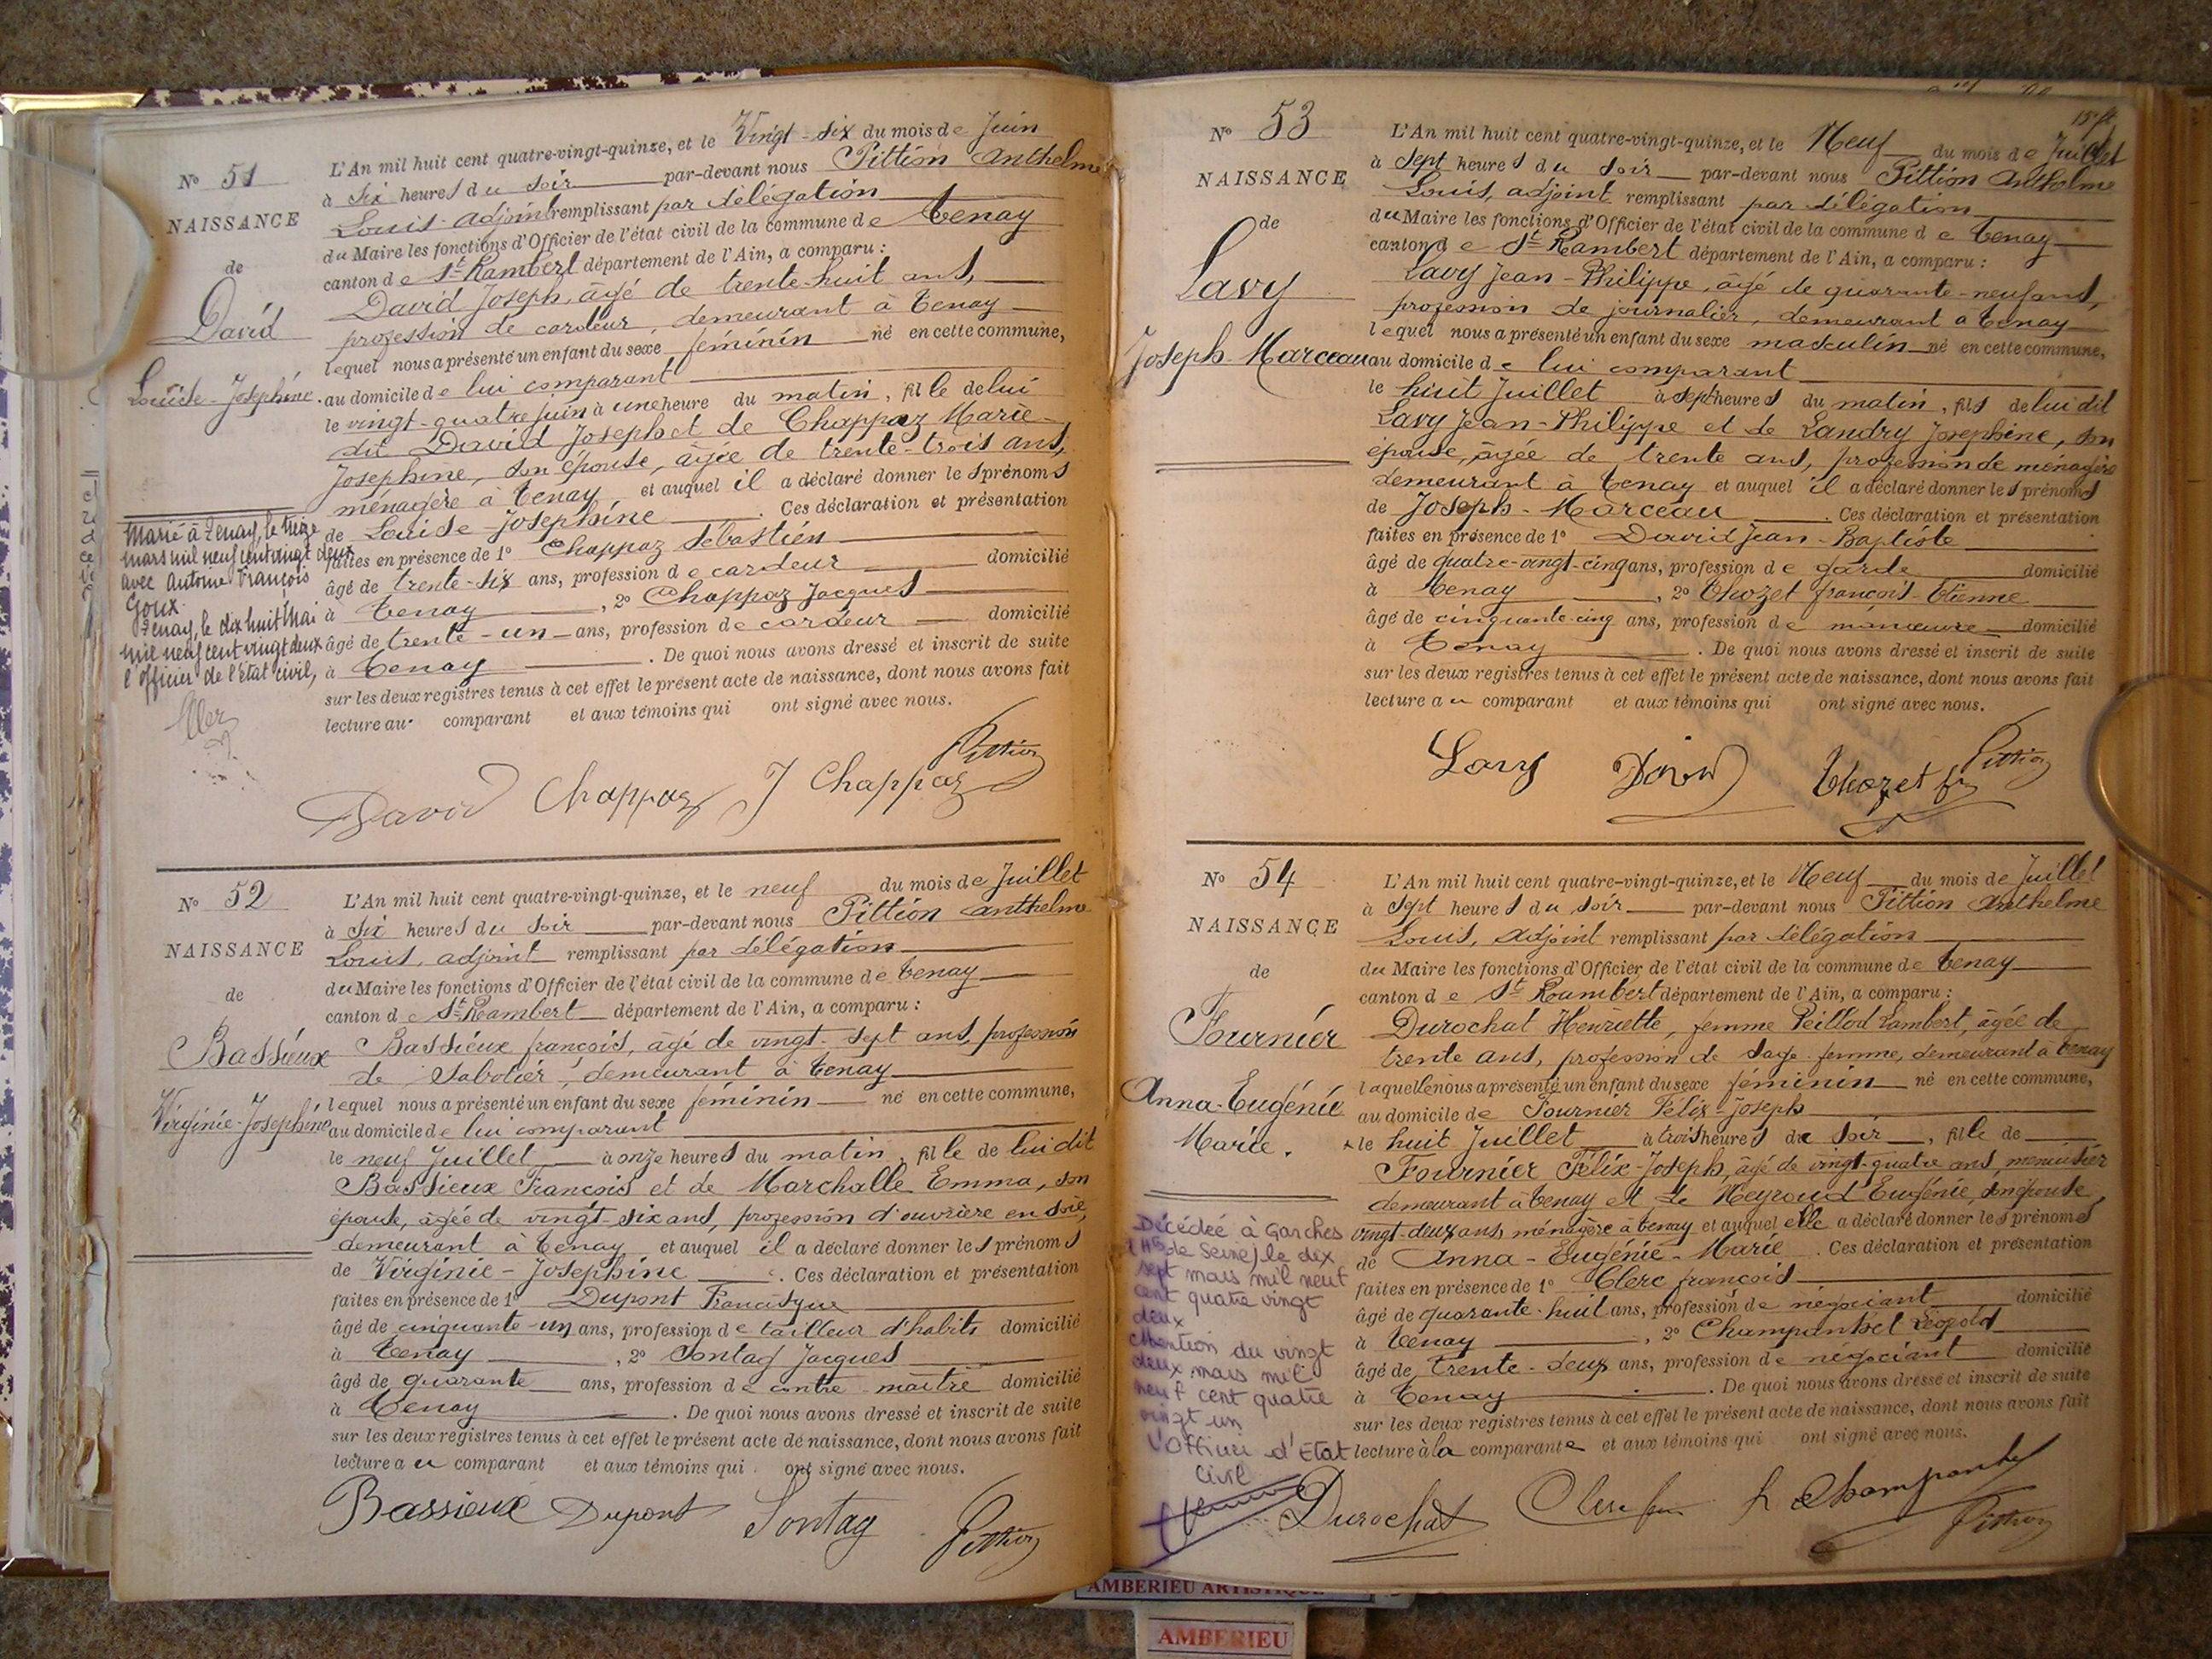 N° 51
NAISSANCE
de
David
Louise-Joséphine.
L'An mil huit cent quatre-vingt-quinze, et le Vingt-six du mois de Juin
à six heures du soir par-devant nous Pittion Anthelme
Louis adjoint remplissant par délégation
du Maire les fonctions d'Officier de l'état civil de la commune de Tenay
canton de St Rambert département de l'Ain, a comparu :
David Joseph, âgé de trente-huit ans,
profession de cardeur, demeurant à Tenay
lequel nous a présenté un enfant du sexe féminin né en cette commune,
au domicile de lui comparant
le vingt-quatre juin à une heure du matin, fille de lui
dit David Joseph et de Chappaz Marie
Joséphine, son épouse, âgée de trente-trois ans,
ménagère à Tenay et auquel il a déclaré donner les prénoms
de Louise-Joséphine. Ces déclaration et présentation
faites en présence de 1° Chappaz Sébastien
âgé de trente-six ans, profession de cardeur domicilié
à Tenay, 2° Chappaz Jacques
âgé de trente-un ans, profession de cardeur domicilié
à Tenay. De quoi nous avons dressé et inscrit de suite
sur les deux registres tenus à cet effet le présent acte de naissance, dont nous avons fait
lecture au comparant et aux témoins qui ont signé avec nous.
Marié à Tenay, le treize
mars mil neuf cent vingt deux
avec Antoine François
Goux.
Tenay, le dix huit Mai
mil neuf cent vingt deux
l'officier de l'état civil,
David Chappaz J Chappaz Pittion
N° 52
NAISSANCE
de
Bassieux
Virginie-Joséphine
L'An mil huit cent quatre-vingt-quinze, et le neuf du mois de Juillet
à six heures du soir par-devant nous Pittion Anthelme
Louis, adjoint remplissant par délégation
du Maire les fonctions d'Officier de l'état civil de la commune de Tenay
canton de St Rambert département de l'Ain, a comparu :
Bassieux françois, âgé de vingt-sept ans, profession
de Sabotier, demeurant à Tenay
lequel nous a présenté un enfant du sexe féminin né en cette commune,
au domicile de lui comparant
le neuf Juillet à onze heures du matin, fille de lui dit
Bassieux François et de Marchalle Emma, son
épouse, âgée de vingt-six ans, profession d'ouvrière en soie,
demeurant à Tenay et auquel il a déclaré donner les prénoms
de Virginie-Joséphine. Ces déclaration et présentation
faites en présence de 1° Dupont Francisque
âgé de cinquante-un ans, profession de tailleur d'habits domicilié
à Tenay, 2° Sontag Jacques
âgé de quarante ans, profession de contre-maître domicilié
à Tenay. De quoi nous avons dressé et inscrit de suite
sur les deux registres tenus à cet effet le présent acte de naissance, dont nous avons fait
lecture au comparant et aux témoins qui ont signé avec nous.
Bassieux Dupont Sontag Pittion
N° 53
NAISSANCE
de
Lavy
Joseph-Marceau
L'An mil huit cent quatre-vingt-quinze, et le Neuf du mois de Juillet
à sept heures du soir par-devant nous Pittion Anthelme
Louis, adjoint remplissant par délégation
du Maire les fonctions d'Officier de l'état civil de la commune de Tenay
canton de St Rambert département de l'Ain, a comparu :
Lavy Jean-Philippe, âgé de quarante-neuf ans,
profession de journalier, demeurant à Tenay
lequel nous a présenté un enfant du sexe masculin né en cette commune,
au domicile de lui comparant
le huit Juillet à sept heures du matin, fils de lui dit
Lavy Jean-Philippe et de Landry Joséphine, son
épouse, âgée de trente ans, profession de ménagère
demeurant à Tenay et auquel il a déclaré donner les prénoms
de Joseph-Marceau. Ces déclaration et présentation
faites en présence de 1° David Jean-Baptiste
âgé de quatre-vingt-cinq ans, profession de garde domicilié
à Tenay, 2° Thozet françois-Etienne
âgé de cinquante-cinq ans, profession de manœuvre domicilié
à Tenay. De quoi nous avons dressé et inscrit de suite
sur les deux registres tenus à cet effet le présent acte de naissance, dont nous avons fait
lecture au comparant et aux témoins qui ont signé avec nous.
Lavy David Thozet Pittion
N° 54
NAISSANCE
de
Fournier
Anna-Eugénie
Marie.
L'An mil huit cent quatre-vingt-quinze, et le Neuf du mois de Juillet
à sept heures du soir par-devant nous Pittion Anthelme
Louis, adjoint remplissant par délégation
du Maire les fonctions d'Officier de l'état civil de la commune de Tenay
canton de St Rambert département de l'Ain, a comparu :
Durochat Henriette, femme Peillod Lambert, âgée de
trente ans, profession de sage-femme, demeurant à Tenay
laquelle nous a présenté un enfant du sexe féminin né en cette commune,
au domicile de Fournier Félix-Joseph
le huit Juillet à trois heures du soir, fille de
Fournier Félix-Joseph, âgé de vingt-quatre ans, menuisier
demeurant à Tenay et de Neyroud Eugénie, son épouse,
vingt-deux ans, ménagère à Tenay et auquel elle a déclaré donner les prénoms
de Anna-Eugénie-Marie. Ces déclaration et présentation
faites en présence de 1° Clerc françois
âgé de quarante-huit ans, profession de négociant domicilié
à Tenay, 2° Champanhet Léopold
âgé de trente-deux ans, profession de négociant domicilié
à Tenay. De quoi nous avons dressé et inscrit de suite
sur les deux registres tenus à cet effet le présent acte de naissance, dont nous avons fait
lecture à la comparante et aux témoins qui ont signé avec nous.
Décédée à Garches
(Hts de Seine) le dix
sept mars mil neuf
cent quatre vingt
deux
Mention du vingt
deux mars mil
neuf cent quatre
vingt un
L'Officier d'Etat
Civil
Durochat Clerc L Champanhet Pittion
AMBERIEU ARTISTIQUE
AMBERIEU